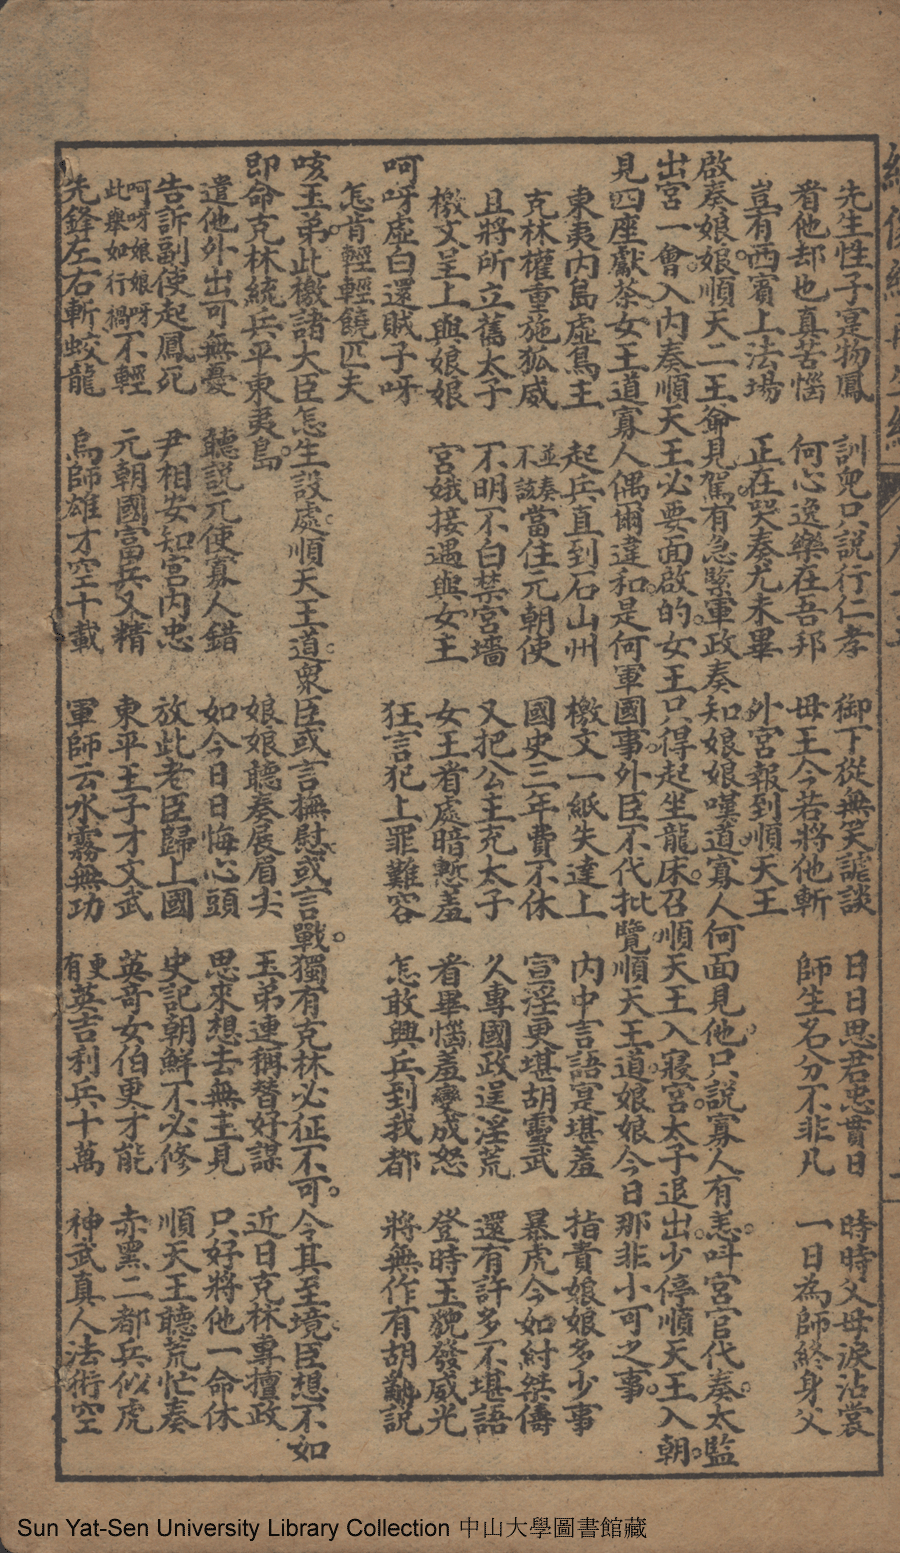 先生性子寔物鳳 訓兒只說行仁孝 御下從無笑謔談 日日思君忠貫日 時時父母淚沾裳
看他却也真苦惱 何心逸樂在吾邦 母王今若將他斬 師生名分不非凡 一日為師終身父
豈有西賓上法場 正在哭奏尤未畢 外宮報到順天王
啟奏娘娘順天二王爺見駕。有急緊軍政奏知娘娘嘆道。寡人何面見他。只說寡人有恙。呌宮官代奏。太監
出宮一會。入內奏順天王必要面啟的。女王只得起坐龍床。召順天王入寢宮。太子退出。少停順天王入朝。
見四座獻茶。女王道寡人偶爾違和。是何軍國事。外臣不代批覽。順天王道。娘娘今日那非小可之事。
東夷內島虛鳥主 起兵直到石山州 檄文一紙失達上 內中言語寔堪羞 指責娘娘多少事
克林權重施狐威 並不該奏當住元朝使 國史三年費不休 宣淫更堪胡靈武 暴虎今如紂桀儔
且將所立舊太子 不明不白禁宮墻 又把公主充太子 久專國政逞淫荒 還有許多不堪語
檄文呈上與娘娘 宮娥接遇與女主 女王看處暗慙羞 看畢惱羞變成怒 登時玉貌發威光
呵呀虛白還賊子呀 狂言犯上罪難容 怎敢興兵到我都 將無作有胡歝說
怎肯輕輕饒匹夫
咳王弟。此檄諸大臣怎生設處。順天王道。衆臣或言撫慰。或言戰。獨有克林必征不可。今其至境。臣想不如
即命克林統兵平東夷島。 娘娘聽奏展眉尖 王弟連稱替好謀 近日克林專擅政
遣他外出可無憂 聽說元使寡人錯 如今日日悔心頭 思來想去無主見 只好將他一命休
告訴副使起鳳死 尹相安知宮內忠 放此老臣歸上國 史記朝鮮不必修 順天王聽荒忙奏
呵呀娘娘呀此舉如行禍不輕 元朝國富兵又精 東平王子才文武 英奇女伯更才能 赤黑二都兵似虎
先鋒左右斬蛟龍 烏師雄才空十載 軍師云水霧無功 更有英吉利兵十萬 神武真人法術空
Sun Yat-Sen University Library Collection 中山大學圖書館藏